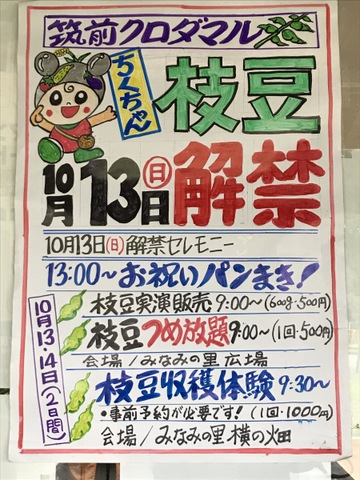 筑前クロダマル
ちくちゃん
枝豆
10月13日(日)解禁
10月13日(日)解禁セレモニー
13:00~お祝いパンまき!
10月13・14日(2日間)
枝豆実演販売9:00~(600g・500円)
枝豆つめ放題9:00~(1回・500円)
会場/みなみの里広場
枝豆収穫体験9:30~
•事前予約が必要です!(1回・1000円)
会場/みなみの里横の畑